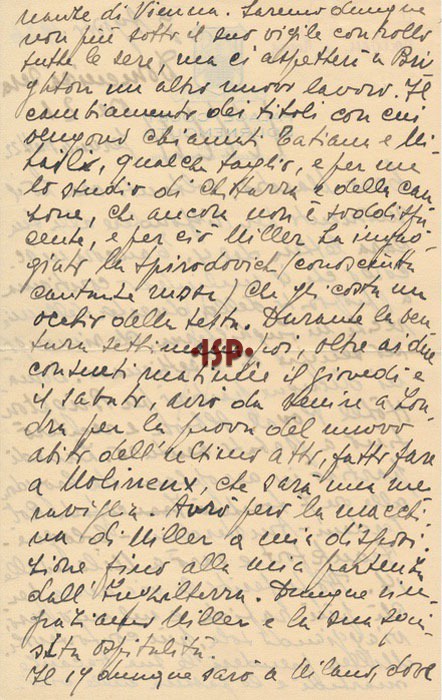 nanze di Vienna. Saremo dunque
non più sotto il suo vigile controllo
tutte le sere, ma ci aspetterà a Bri
ghton un altro nuovo lavoro. Il
cambiamento dei titoli con cui
vengono chiamati Tatiana e Mi
taile, qualche taglio, e per me
lo studio di chitarra e della can
zone, che ancora non è soddisfa
cente, e per ciò Miller ha ingag
giato la Spirodovich (conosciuta
cantante russa) che gli costa un
occhio della testa. Durante la ven
tura settimana poi, oltre ai due
consueti matinée il giovedì e
il sabato, avrò da venire a Lon
dra per la prova del nuovo
abito dell'ultimo atto, fatto fare
a Molineux, che sarà una me
raviglia. Avrò però la macchi
na di Miller a mia disposi
zione fino alla mia partenza
dall'Inghilterra. Dunque rin
graziamo Miller e la sua squi
sita ospitalità.
Il 19 dunque sarò a Milano, dove
•ISP•